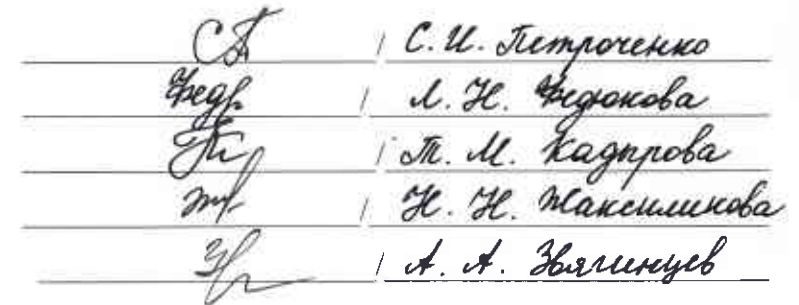 / С. И. Петроченко
/ Л. Н. Федюкова
/ Т. М. Кадирова
/ Н. Н. Максимикова
/ А. А. Звягинцев